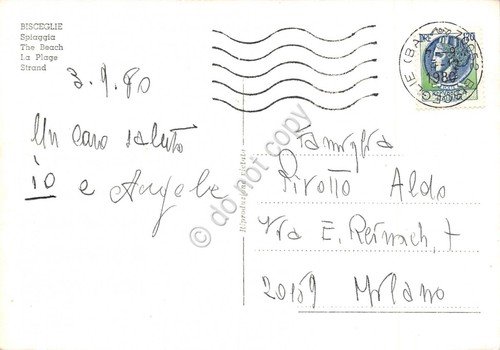 BISCEGLIE
Spiaggia
The Beach
La Plage
Strand
3.9.80
Un caro saluto
io e Angela
Riproduzione vietata
Famiglia
Pirotto Aldo
Via E. Reinach, 7
20159 Milano
do not copy
1980
BISCEGLIE (BA)